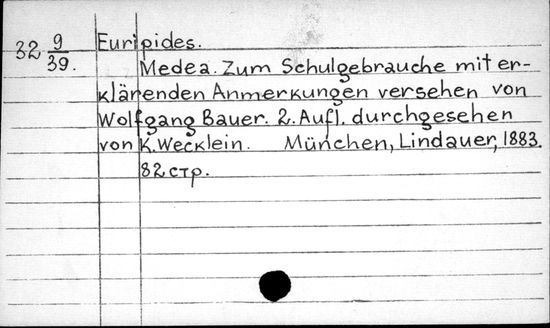 32 9/39. Euripides.
Medea. Zum Schulgebrauche mit er-
klärenden Anmerkungen versehen von
Wolfgang Bauer. 2. Aufl. durchgesehen
von K. Wecklein. München, Lindauer, 1883.
82 стр.